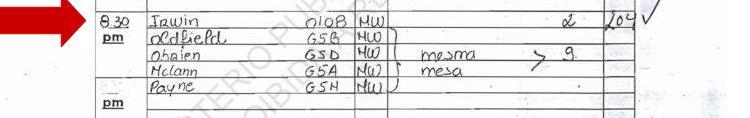 8.30 Irwin 010B MW 2 204 ✓
pm oldfield G5B MW
Obrien G5D MW mesma > 9
McCann G5A MW mesa
Payne G5H MW
pm